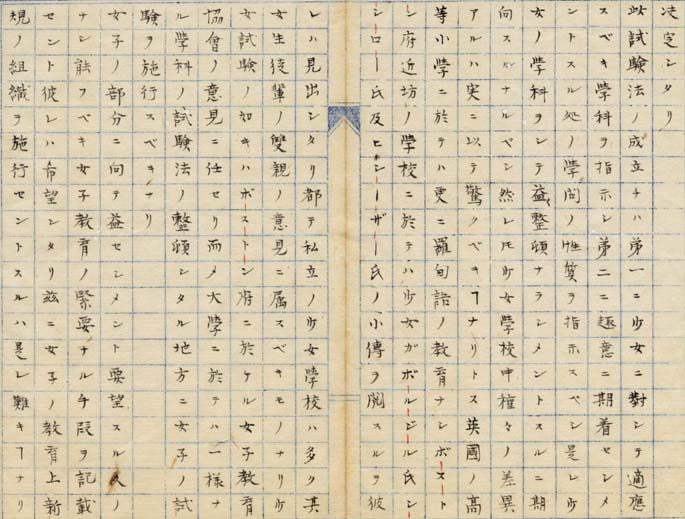 決定シタリ
此試験法ノ成立チハ第一ニ少女ニ對シテ適應
スベキ學科ヲ指示シ第二ニ趣意ニ期着セシメ
ントスル処ノ學問ノ性質ヲ指示スベシ是レ少
女ノ學科ヲシテ益整頓ナラシメントスルニ期
向スルナルベシ然レ𪜈少女學校中種々ノ差異
アルハ実ニ以テ驚クベキヿナリトス英國ノ高
等小學ニ於テハ更ニ羅甸語ノ教育ナシボスト
ン府近坊ノ學校ニ於テハ少女ガボルジル氏シ
シロー氏及ヒシーザー氏ノ小傳ヲ閲スルヲ彼
レハ見出シタリ都テ私立ノ少女學校ハ多ク其
女生徒輩ノ雙親ノ意見ニ属スベキモノナリ少
女試験ノ如キハボストン府ニ於ケル女子教育
協會ノ意見ニ仕セリ而メ大學ニ於テハ一様ナ
ル學科ノ試験法ノ整頓シタル地方ニ女子ノ試
験ヲ施行スベキナリ
女子ノ部分ニ向テ益セシメント要望スル人ノ
ナシ能フベキ女子教育ノ緊要ナル手段ヲ記載
セント彼レハ希望シタリ玆ニ女子ノ教育上新
規ノ組織ヲ施行セントスルハ是レ難キヿナリ